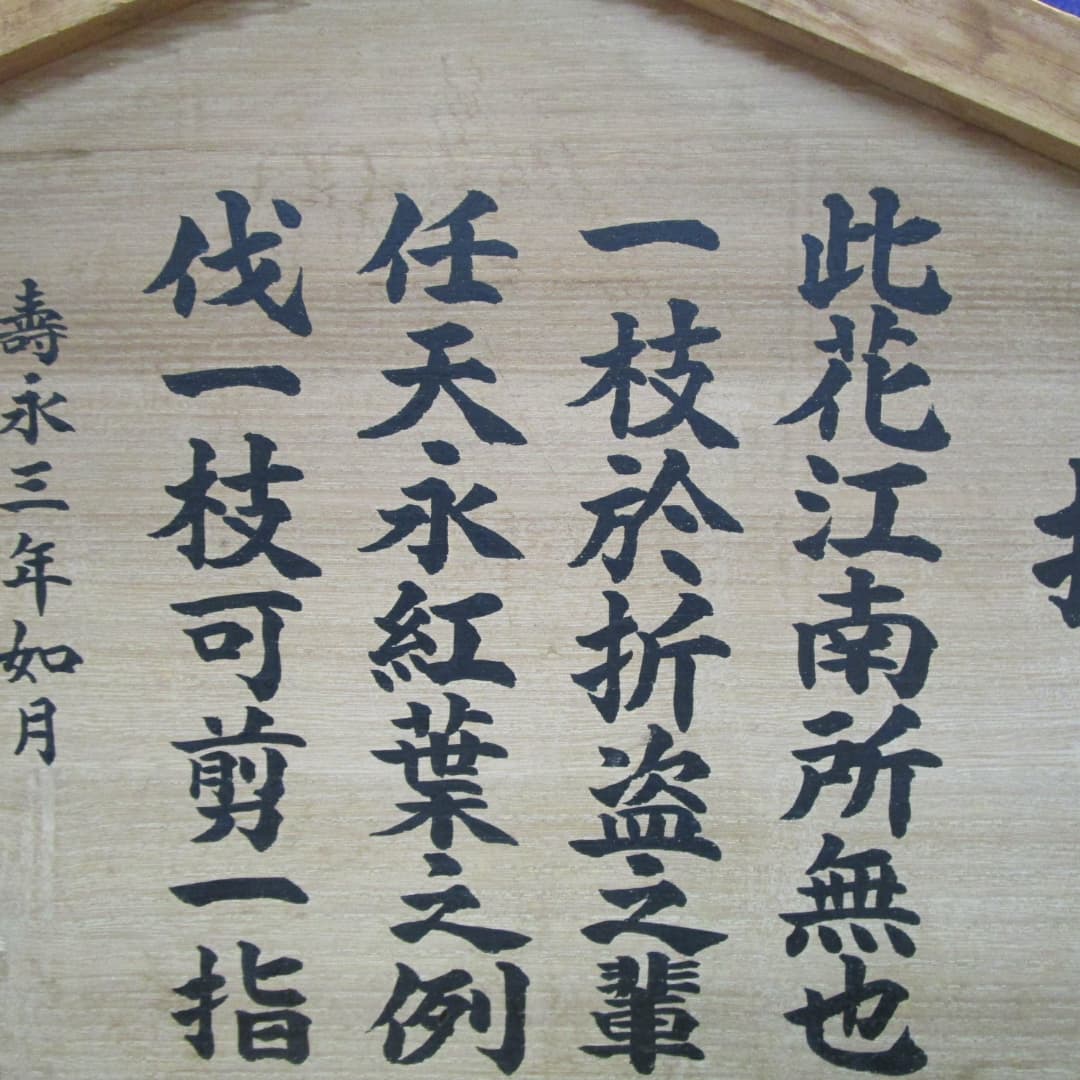 此花江南所無也
一枝於折盗之輩
任天永紅葉之例
伐一枝可剪一指
壽永三年如月